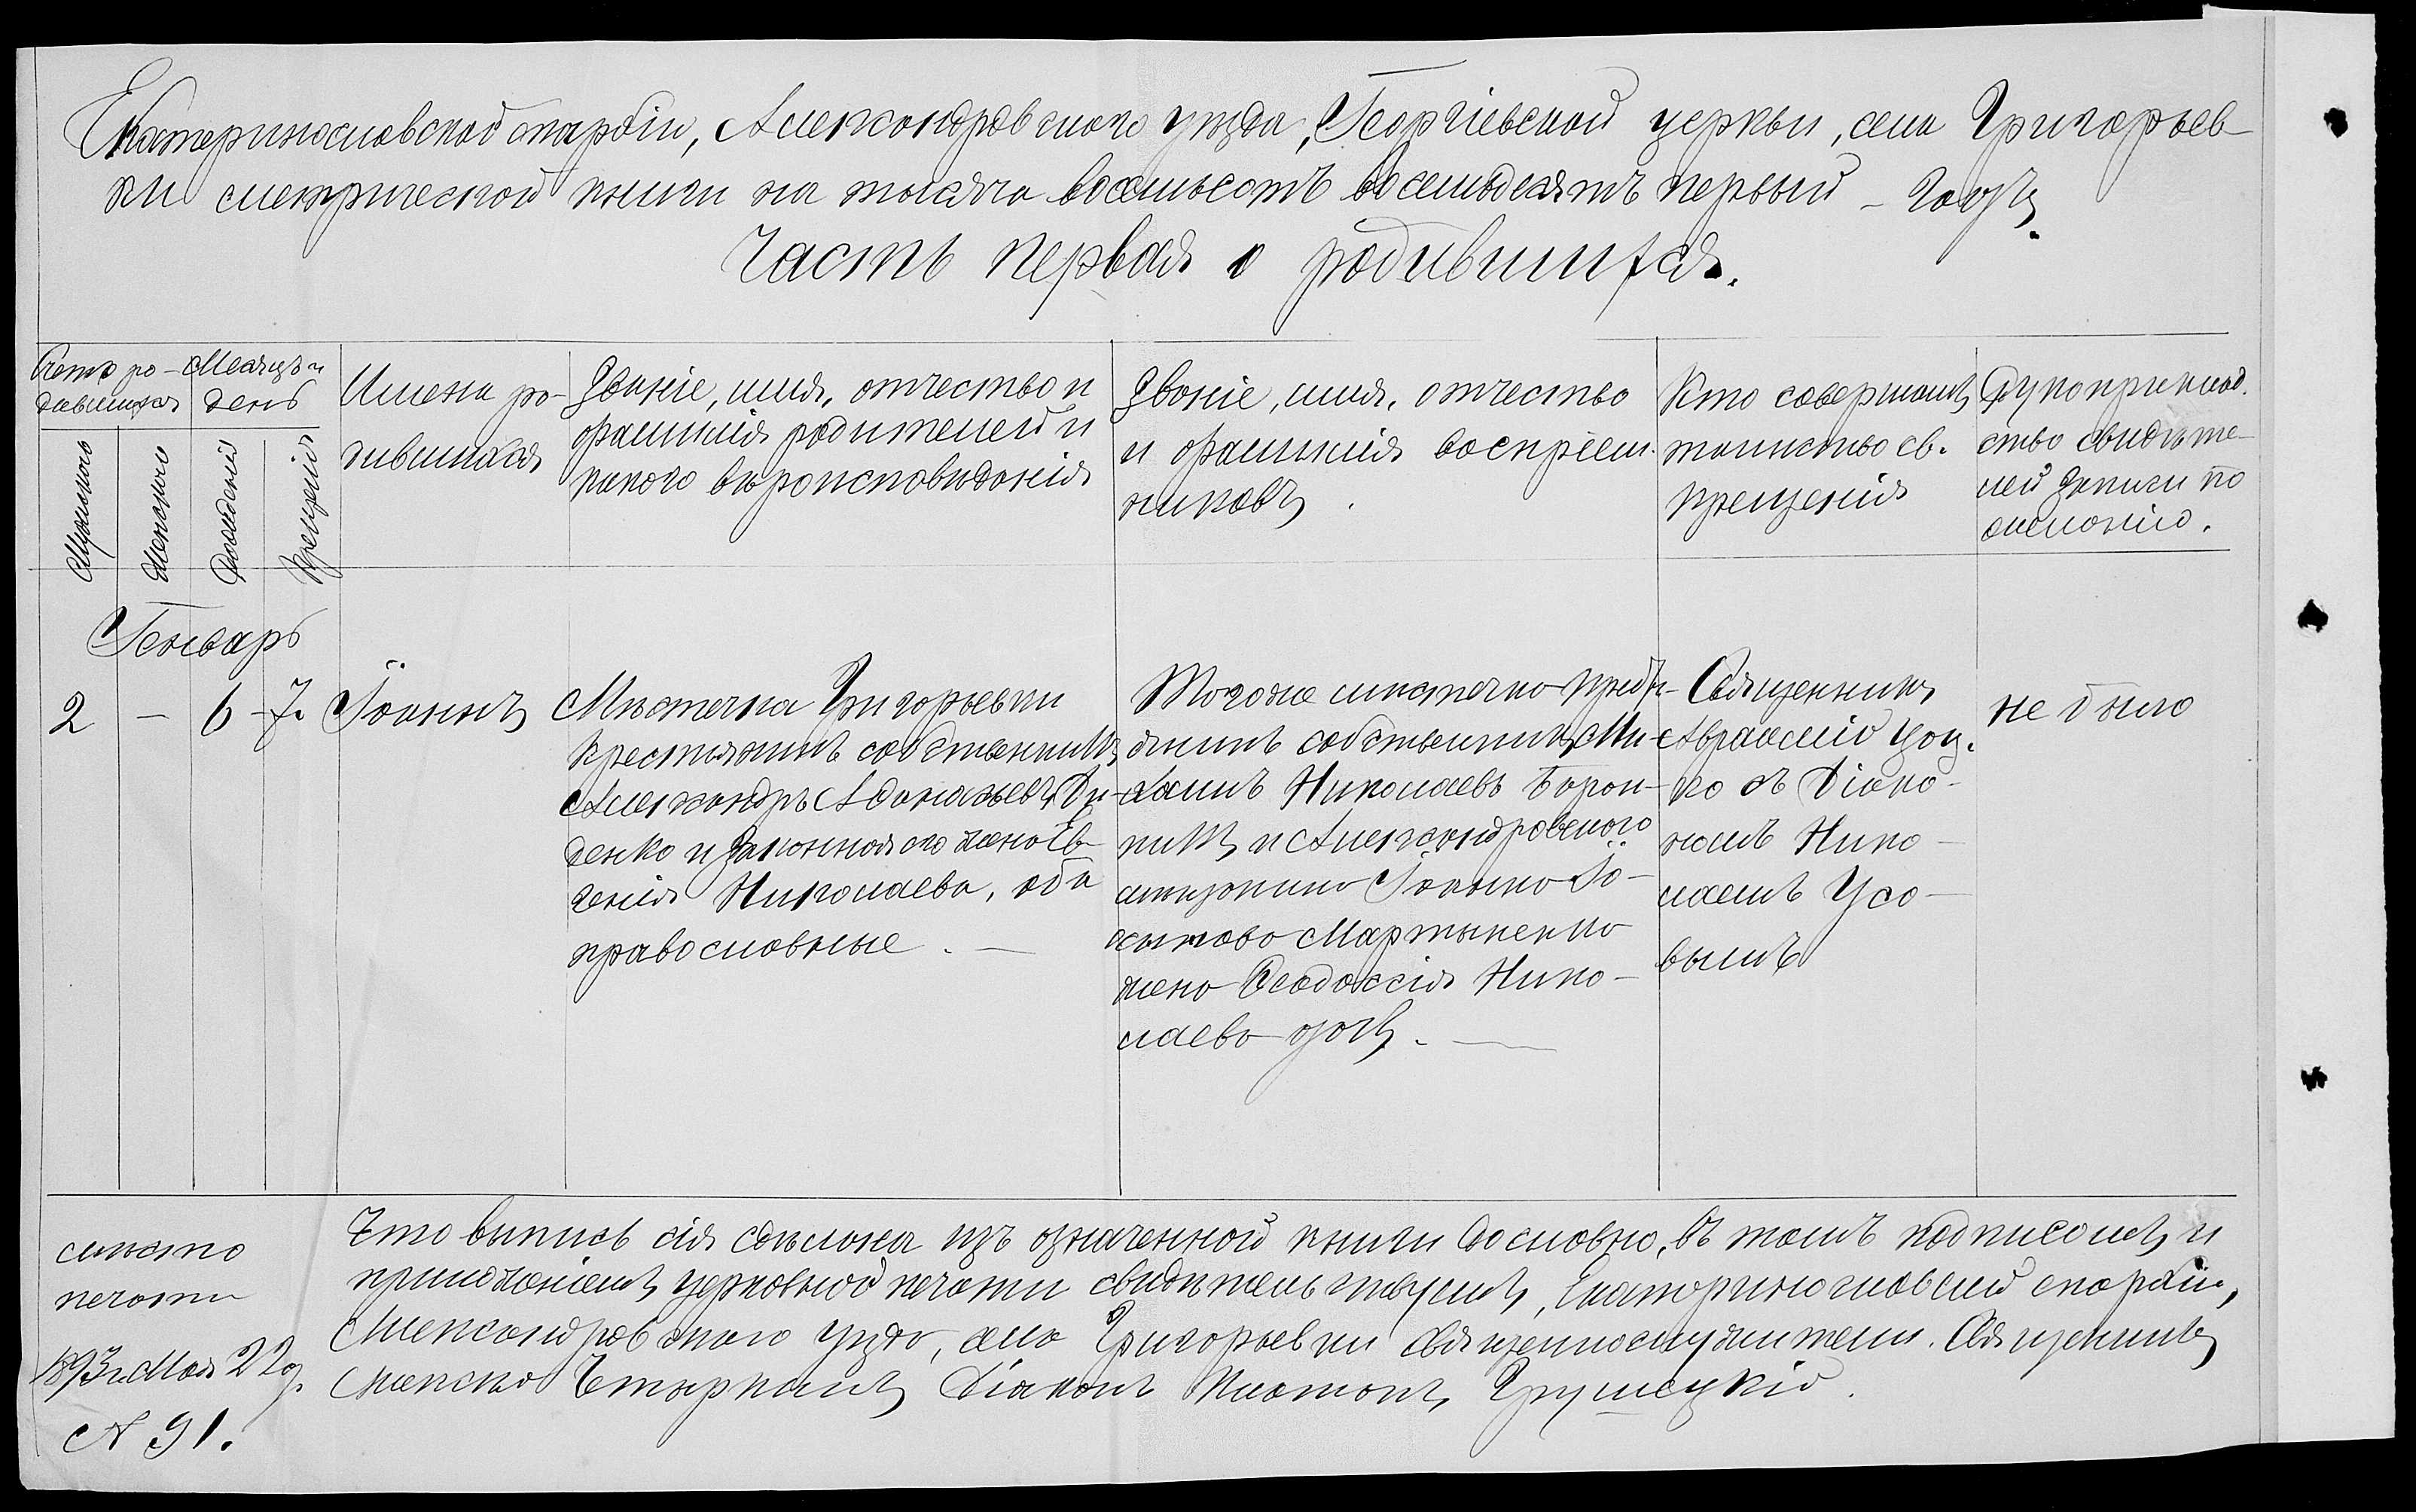 Екатеринославской епархіи, Александровскаго уѣзда, Георгіевской церкви, села Григорьев-
ки метрической книги на тысяча восемьсотъ восемьдесятъ первый – годъ.
Часть первая о родившихся.
Счетъ ро-
дившихся
Мужскаго
Женскаго
Месяцъ и
день
Рожденія
Крещенія
Имена ро-
дившихся
Званіе, имя, отчество и
фамилія родителей и
какого вѣроисповѣданія
Званіе, имя, отчество
и фамилія воспріем-
никовъ.
Кто совершалъ
таинство св.
крещенія
Рукоприклад.
ство свидѣте-
лей записи по
желанію.
Генварь
2 – 6 – 7.
Іоаннъ
Мѣстечка Григорьевки
крестьянинъ собственникъ
Александръ Аѳанасьевъ Ди-
денко и законная его жена Ев-
генія Николаева, оба
православные. —
Того же мѣстечка крестья-
янинъ собственникъ Ми-
хаилъ Николаевъ
и Александровскаго
мѣщанина Іоанна Іо-
сифова Мартыненко
жена Ѳеодосія Нико-
лаева дочь. —
Священникъ
Авраамій
съ Діако-
номъ Нико-
лаемъ Усо-
вымъ
не было
мѣсто
печати
1893 г. Мая 22 д.
№ 91.
Что выпись сія сдѣлана изъ означенной книги дословно, въ томъ подписомъ и
приложеніемъ церковной печати свидѣтельствуемъ, Екатеринославской епархіи,
Александровскаго уѣзда, села Григорьевки священнослужители. Священникъ
Діаконъ Платонъ Грушецкій.